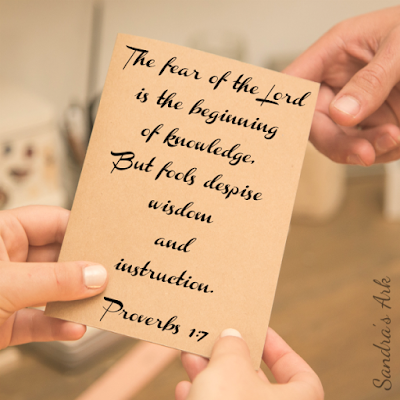 The fear of the Lord
is the beginning
of knowledge,
But fools despise
wisdom
and
instruction.
Proverbs 1:7
Sandra's Ark